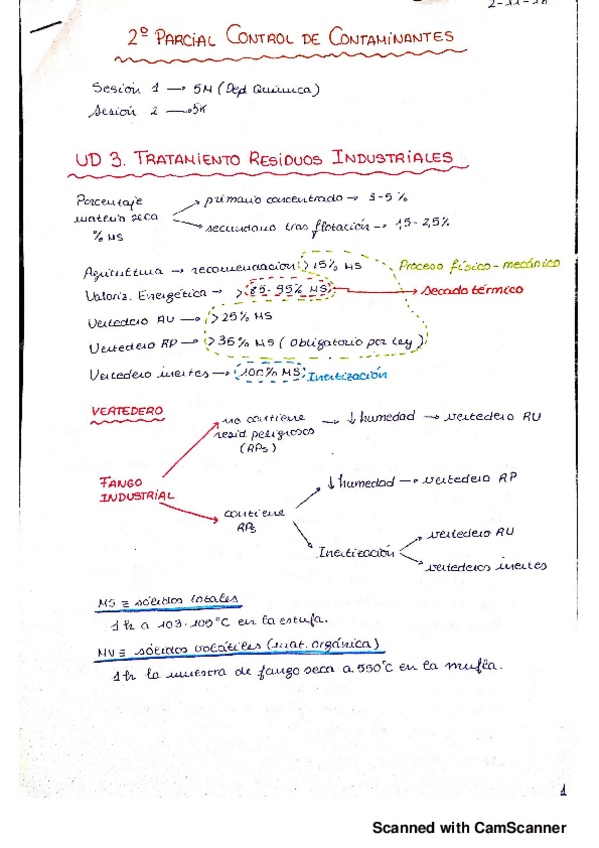 2-11-18
2º PARCIAL CONTROL DE CONTAMINANTES
Sesión 1 → 5M (Dep Química)
Sesión 2 → 5K
UD 3. TRATAMIENTO RESIDUOS INDUSTRIALES
Porcentaje materia seca % MS
primario concentrado → 3-5 %
secundario tras flotación → 1,5 - 2,5%
Agricultura → recomendación > 15% MS
Proceso físico-mecánico
Valoriz. Energética → > 85-95% MS → secado térmico
Vertedero RU → > 25% MS
Vertedero RP → > 35% MS (obligatorio por ley)
Vertedero inertes → 100% MS Inertización
VERTEDERO
no contiene resid. peligrosos (RPs) → ↓ humedad → vertedero RU
FANGO INDUSTRIAL
contiene RPs
↓ humedad → vertedero RP
Inertización
vertedero RU
vertederos inertes
MS ≡ sólidos totales
1 h a 103-105°C en la estufa.
MV ≡ sólidos volátiles (mat. orgánica)
1 h la muestra de fango seca a 550°C en la mufla.
1
Scanned with CamScanner